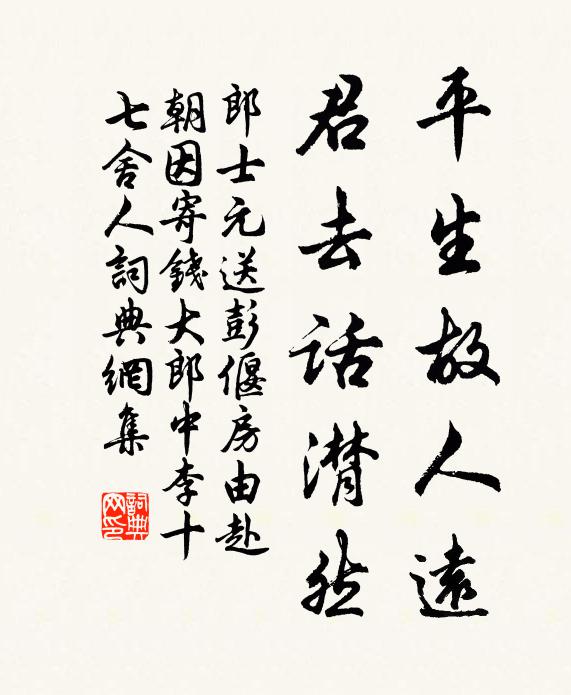 平生故人遠
君去話潸然
郎士元送彭偃房由赴
朝因寄錢大郎中李十
七舍人詞典網集
詞典网印